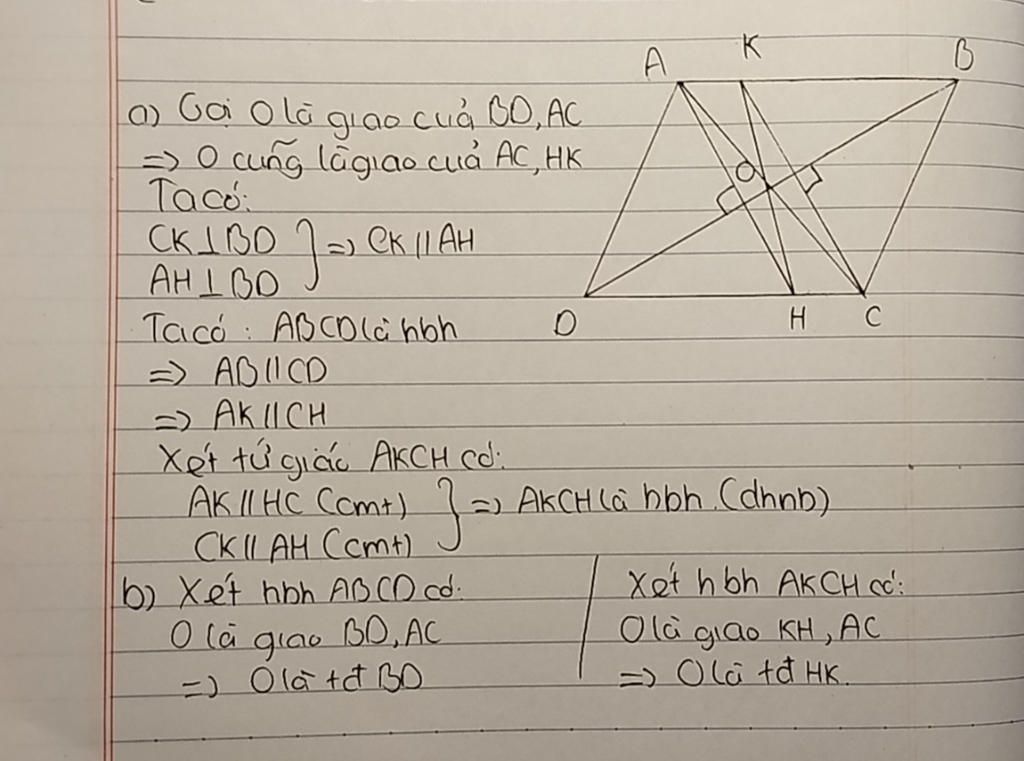 A K B
a) Gọi O là giao của BD, AC
=> O cũng là giao của AC, HK
O
Ta có:
CK ⊥ BD
AH ⊥ BD } => CK // AH
D H C
Ta có : ABCD là hbh
=> AB // CD
=> AK // CH
Xét tứ giác AKCH có:
AK // HC (cmt)
CK // AH (cmt) } => AKCH là hbh. (dhnb)
b) Xét hbh ABCD có:
O là giao BD, AC
=> O là tđ BD
Xét hbh AKCH có:
O là giao KH, AC
=> O là tđ HK.